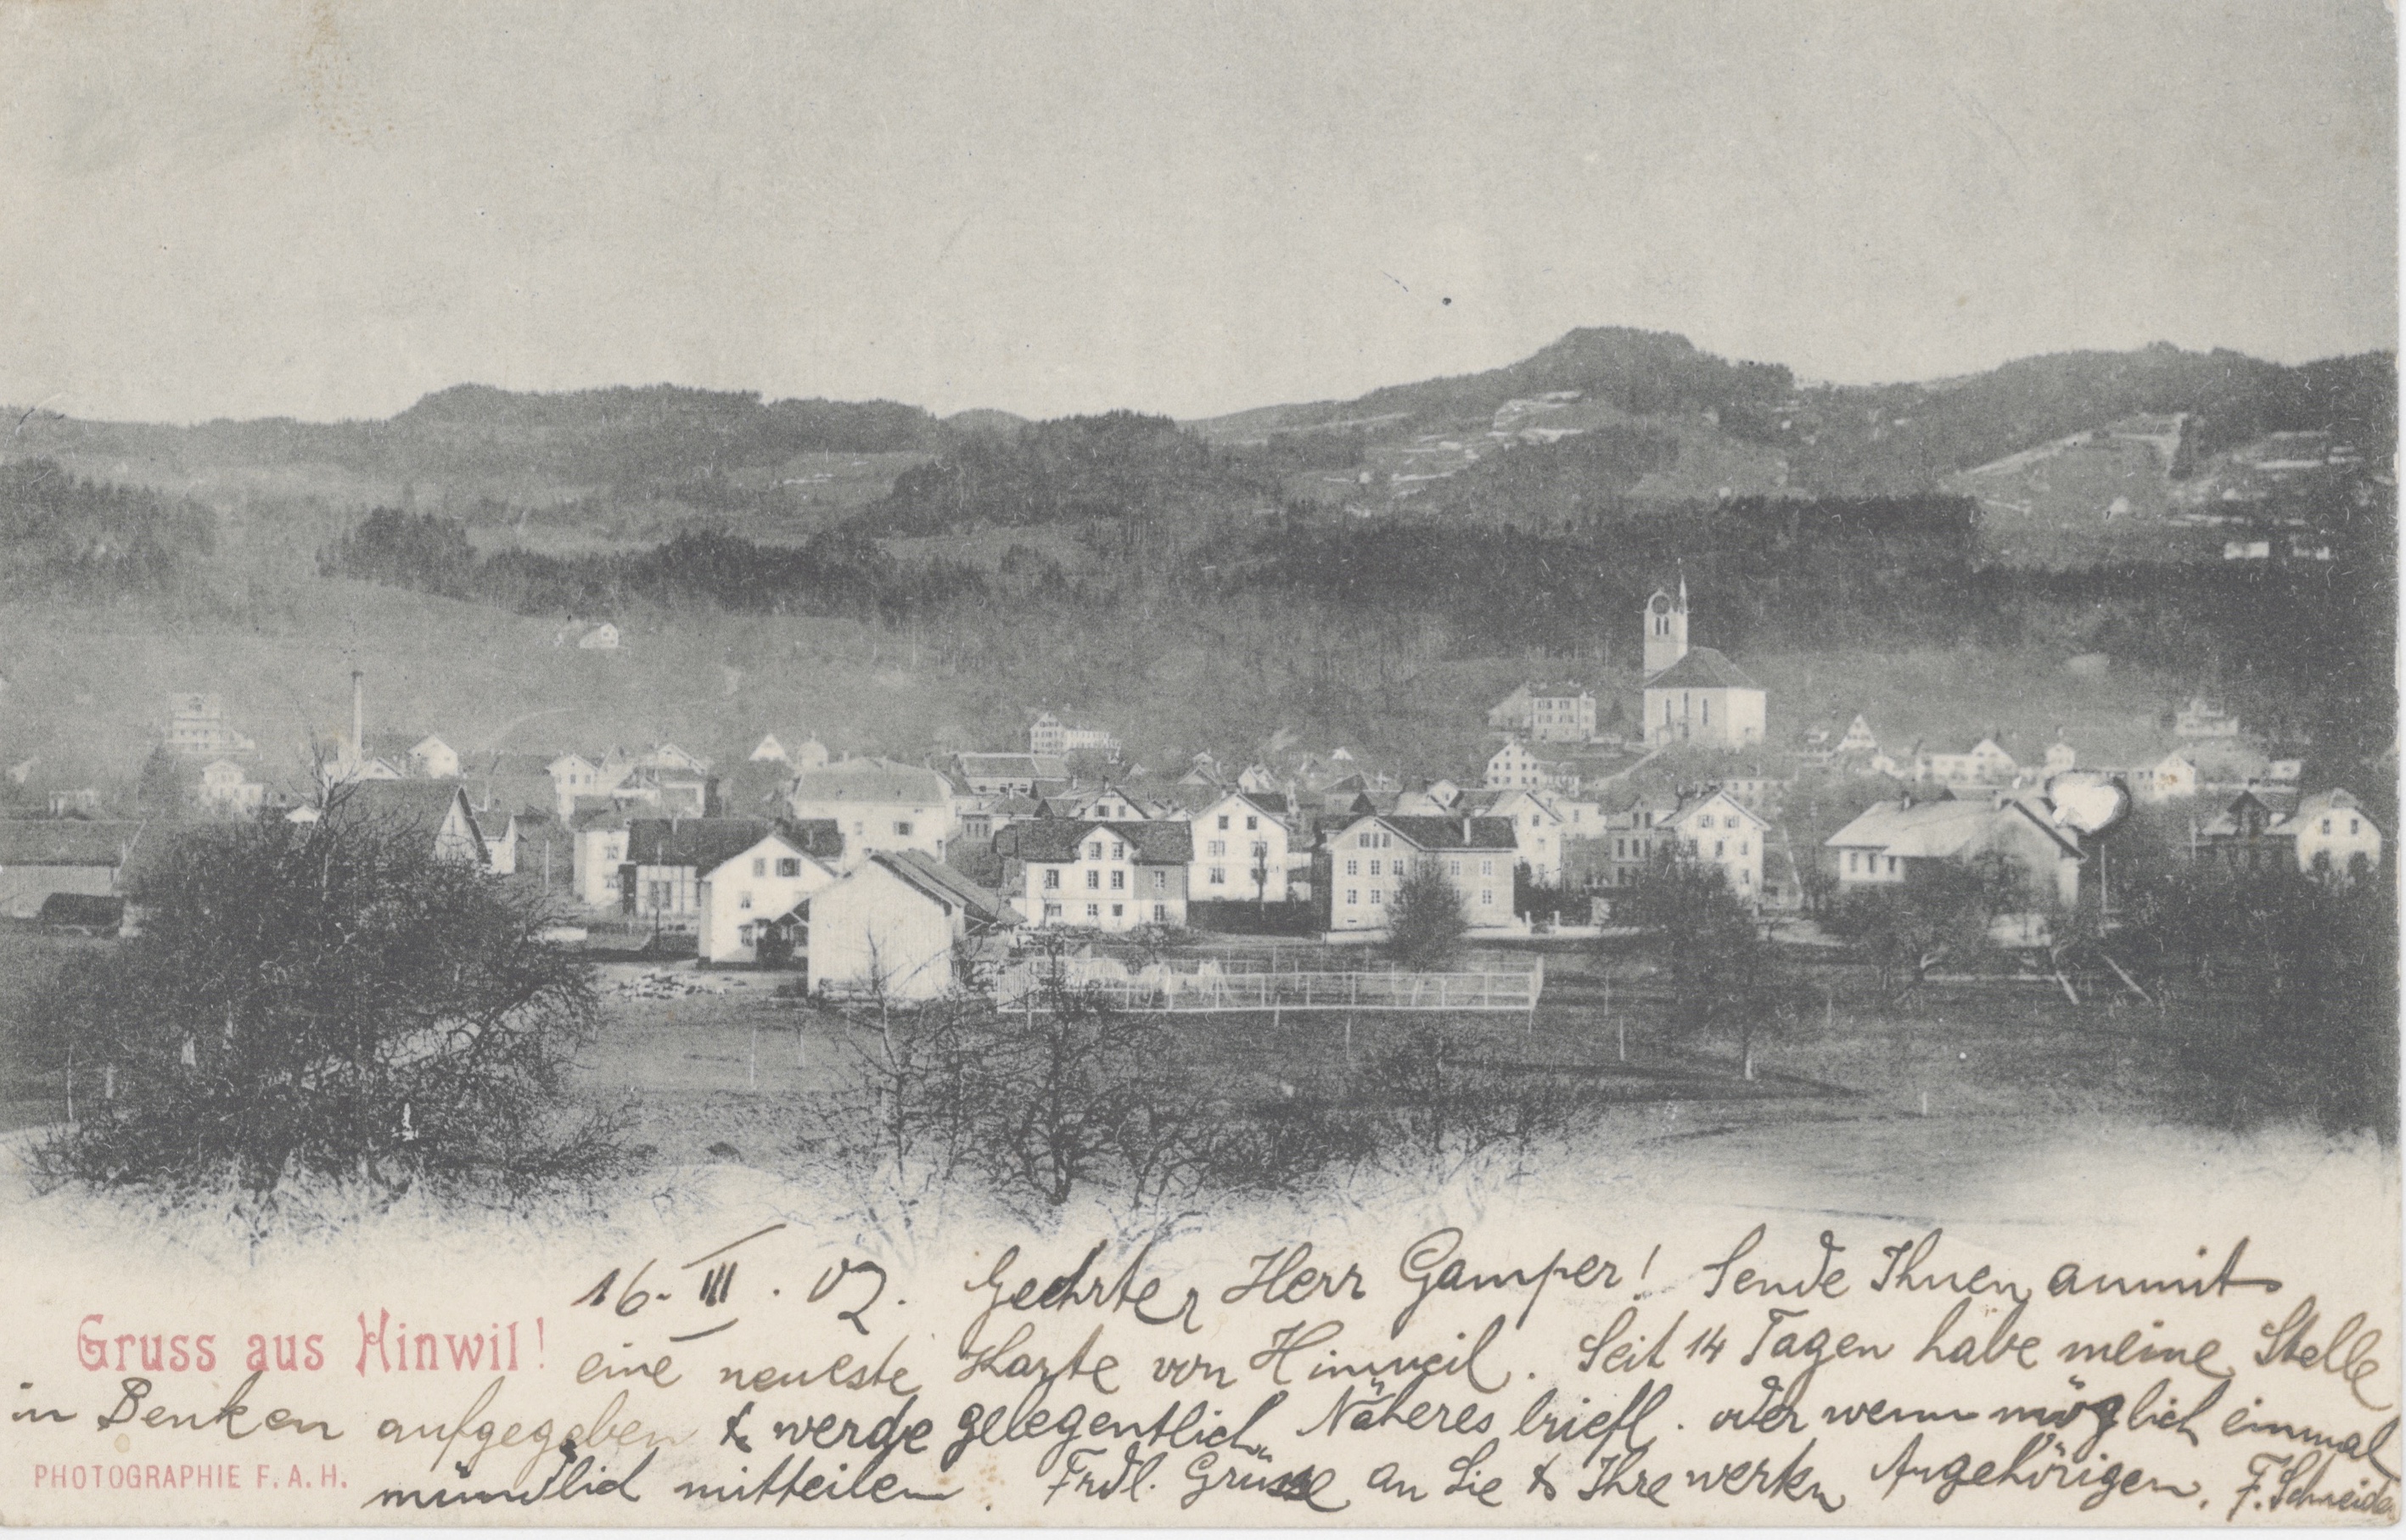 16. III. 02. Geehrter Herr Gamper! Sende Ihnen anmit
Gruss aus Hinwil!
eine neueste Karte von Hinweil. Seit 14 Tagen habe meine Stelle
in Benken aufgegeben & werde gelegentlich Näheres briefl. oder wenn möglich einmal
PHOTOGRAPHIE F. A. H.
mündlich mitteilen. Frdl. Grüsse an Sie & Ihre werten Angehörigen. F. Schneider